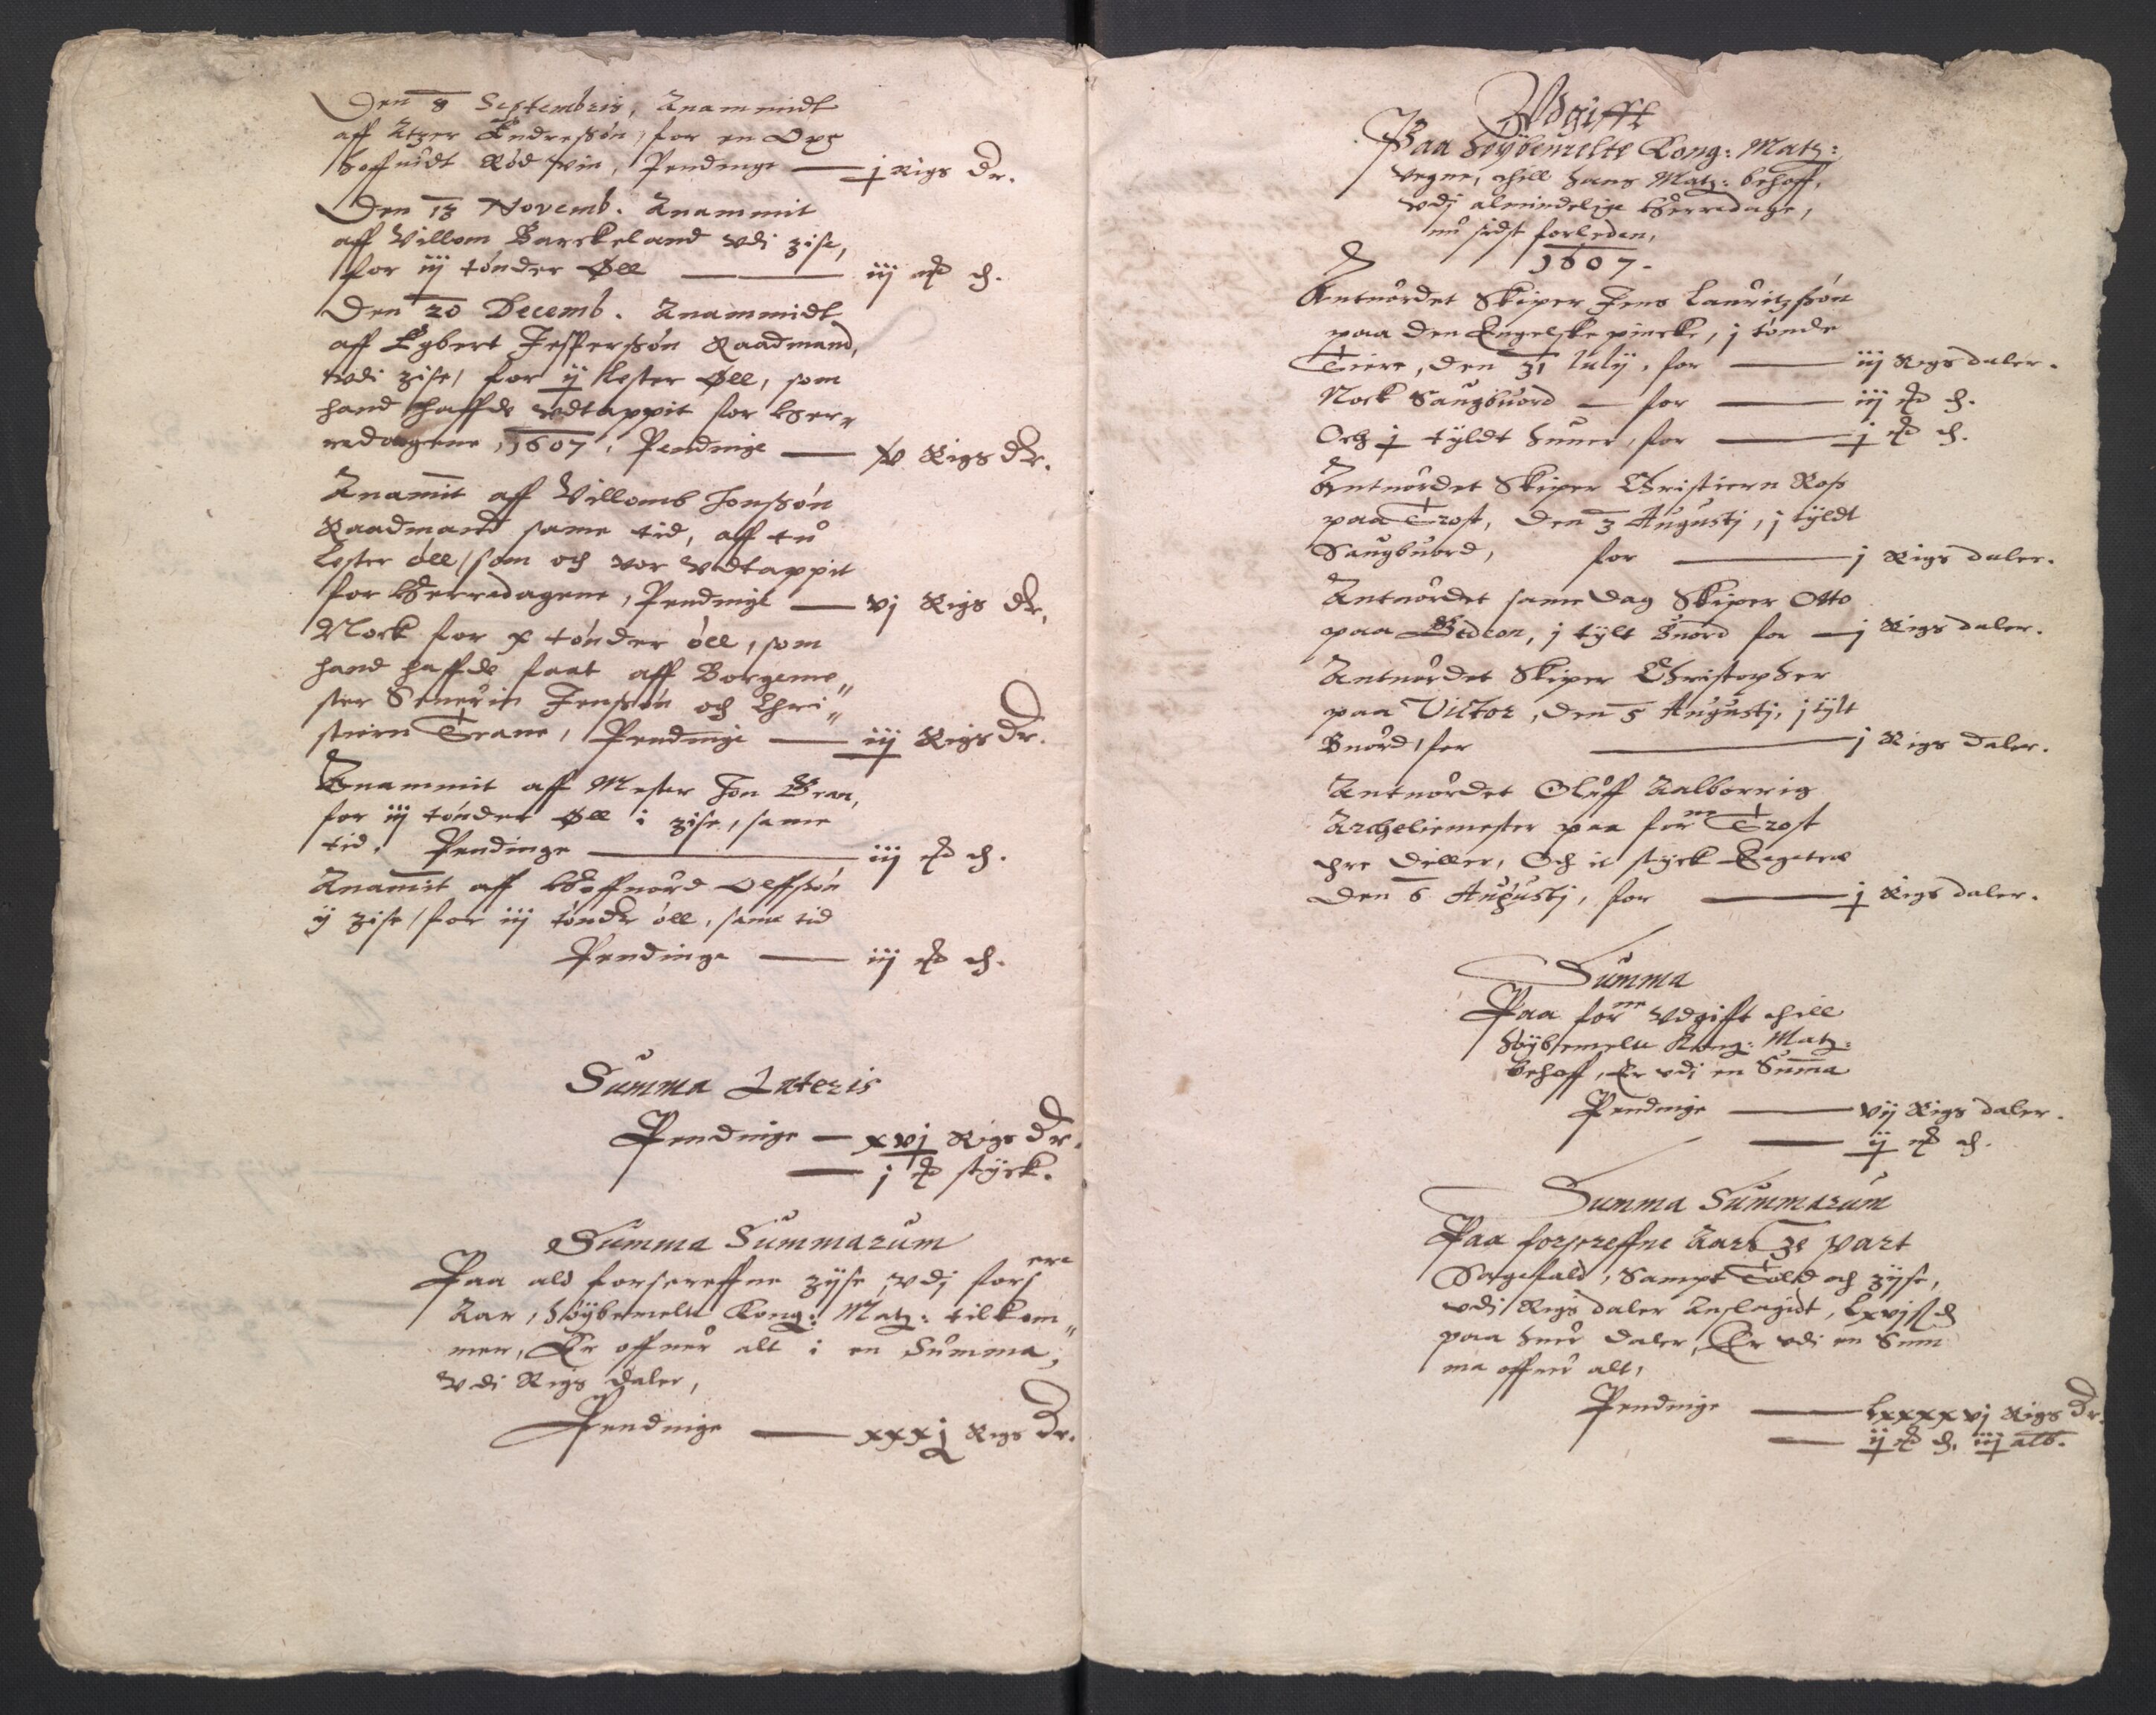 Den 8 Septembris, Anammidt
aff Atzer Endressøn, for en Oxe
hoffuidt Rød vin, Pendinge — j Rigs Dr.
Den 13 Novemb. Anammit
aff Villom Barckeland vdi zise,
for iij tønder Øll — iij
Den 20 Decemb. Anammidt
aff Egbert Jesperssøn Raadmand,
vdi zise, for ij Lester Øll, som
hand haffde vdtappit for Her„
redagene, 1607, Pendinge — Rigs dr.
Anamit aff Villomb Jonssøn
Raadmand same tid, aff tu
Lester øll, som och vor vdtappit
for Herredagene, Pendinge — vj Rigs dr,
Nock for x tønder øll, som
hand haffde faat aff Borgeme„
ster Seuerin Jenssøn och Chri„
stiern Trane, Pendinge — iij Rigs dr.
Anammit aff Mester Jon
for iij tønder Øll i zise, same
tid. Pendinge — iij
Anamit aff Hoffuord Olffssøn
ij zise, for iij tønder øll, same tid
Pendinge — iij
Summa Lateris
Pendinge — xvj Rigs dr.
— j styck.
Summa Summarum
Paa ald forscreffne zijse, vdj forsere
Aar, Høybemelte Kong: Matz: tilkom„
men, Er offuer alt i en Summa,
vdi Rigs daler,
Pendinge — xxxj Rigs dr.
Vdgifft
Paa Høybemelte Kong: Matz:
vegne, thill hans Matz: behoff,
vdj almindelige Herredage,
nu sidst forleden,
1607.
Antuordet Skiper Jens Lauritzssøn
paa den Engelske pincke, j tønde
Tiere, den 31 July, for — iij Rigs daler.
Nock Saugbuord — for — iij
Och j tyldt huner, for — j
Antuordet Skiper Christiern Ross
paa Trost, den 3 Augustj, j tyldt
Saugbuord, for — j Rigs daler.
Antuordet same dag Skiper Otto
paa Gedeon, j tylt Buord for — j Rigs daler.
Antuordet Skiper Christopher
paa Victor, den 5 Augustj, j tylt
Buord, for — j Rigs daler.
Antuordet Oluff Aalborrig
Archeliemester paa forne Trost
thre Diller, Och it styck Egetræ
Den 6 Augustj, for — j Rigs daler.
Summa
Paa forne Vdgifft thill
Høybemelte Kong: Matz:
behoff, Er vdj en Suma
Pendinge — vij Rigs daler.
— ij
Summa Summarum
Paa forscreffne Aars part
Sagefald, Sampt Told och zijse,
vdi Rigs daler Anslagidt,
paa huer daler, Er vdi en Sum
ma offuer alt,
Pendinge — Lxxxxvj Rigs dr.
— ij iij alb.